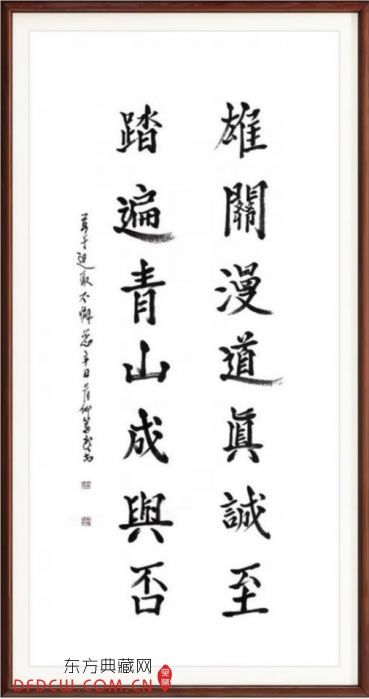 雄關漫道眞誠至
踏遍青山成與否
东方典藏网
DFDCW.COM.CN